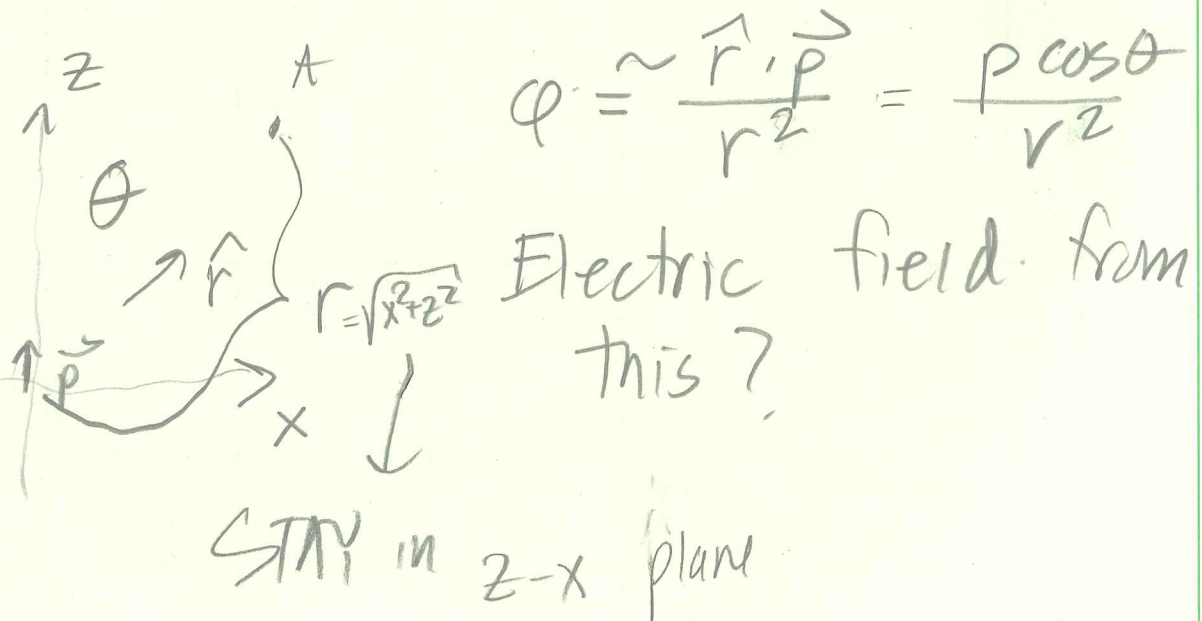 z
A
φ ≅ r̂ · p⃗ / r² = p cosθ / r²
θ
r̂
r = √x²+z²
Electric field from
this?
p⃗
x
STAY in z-x plane